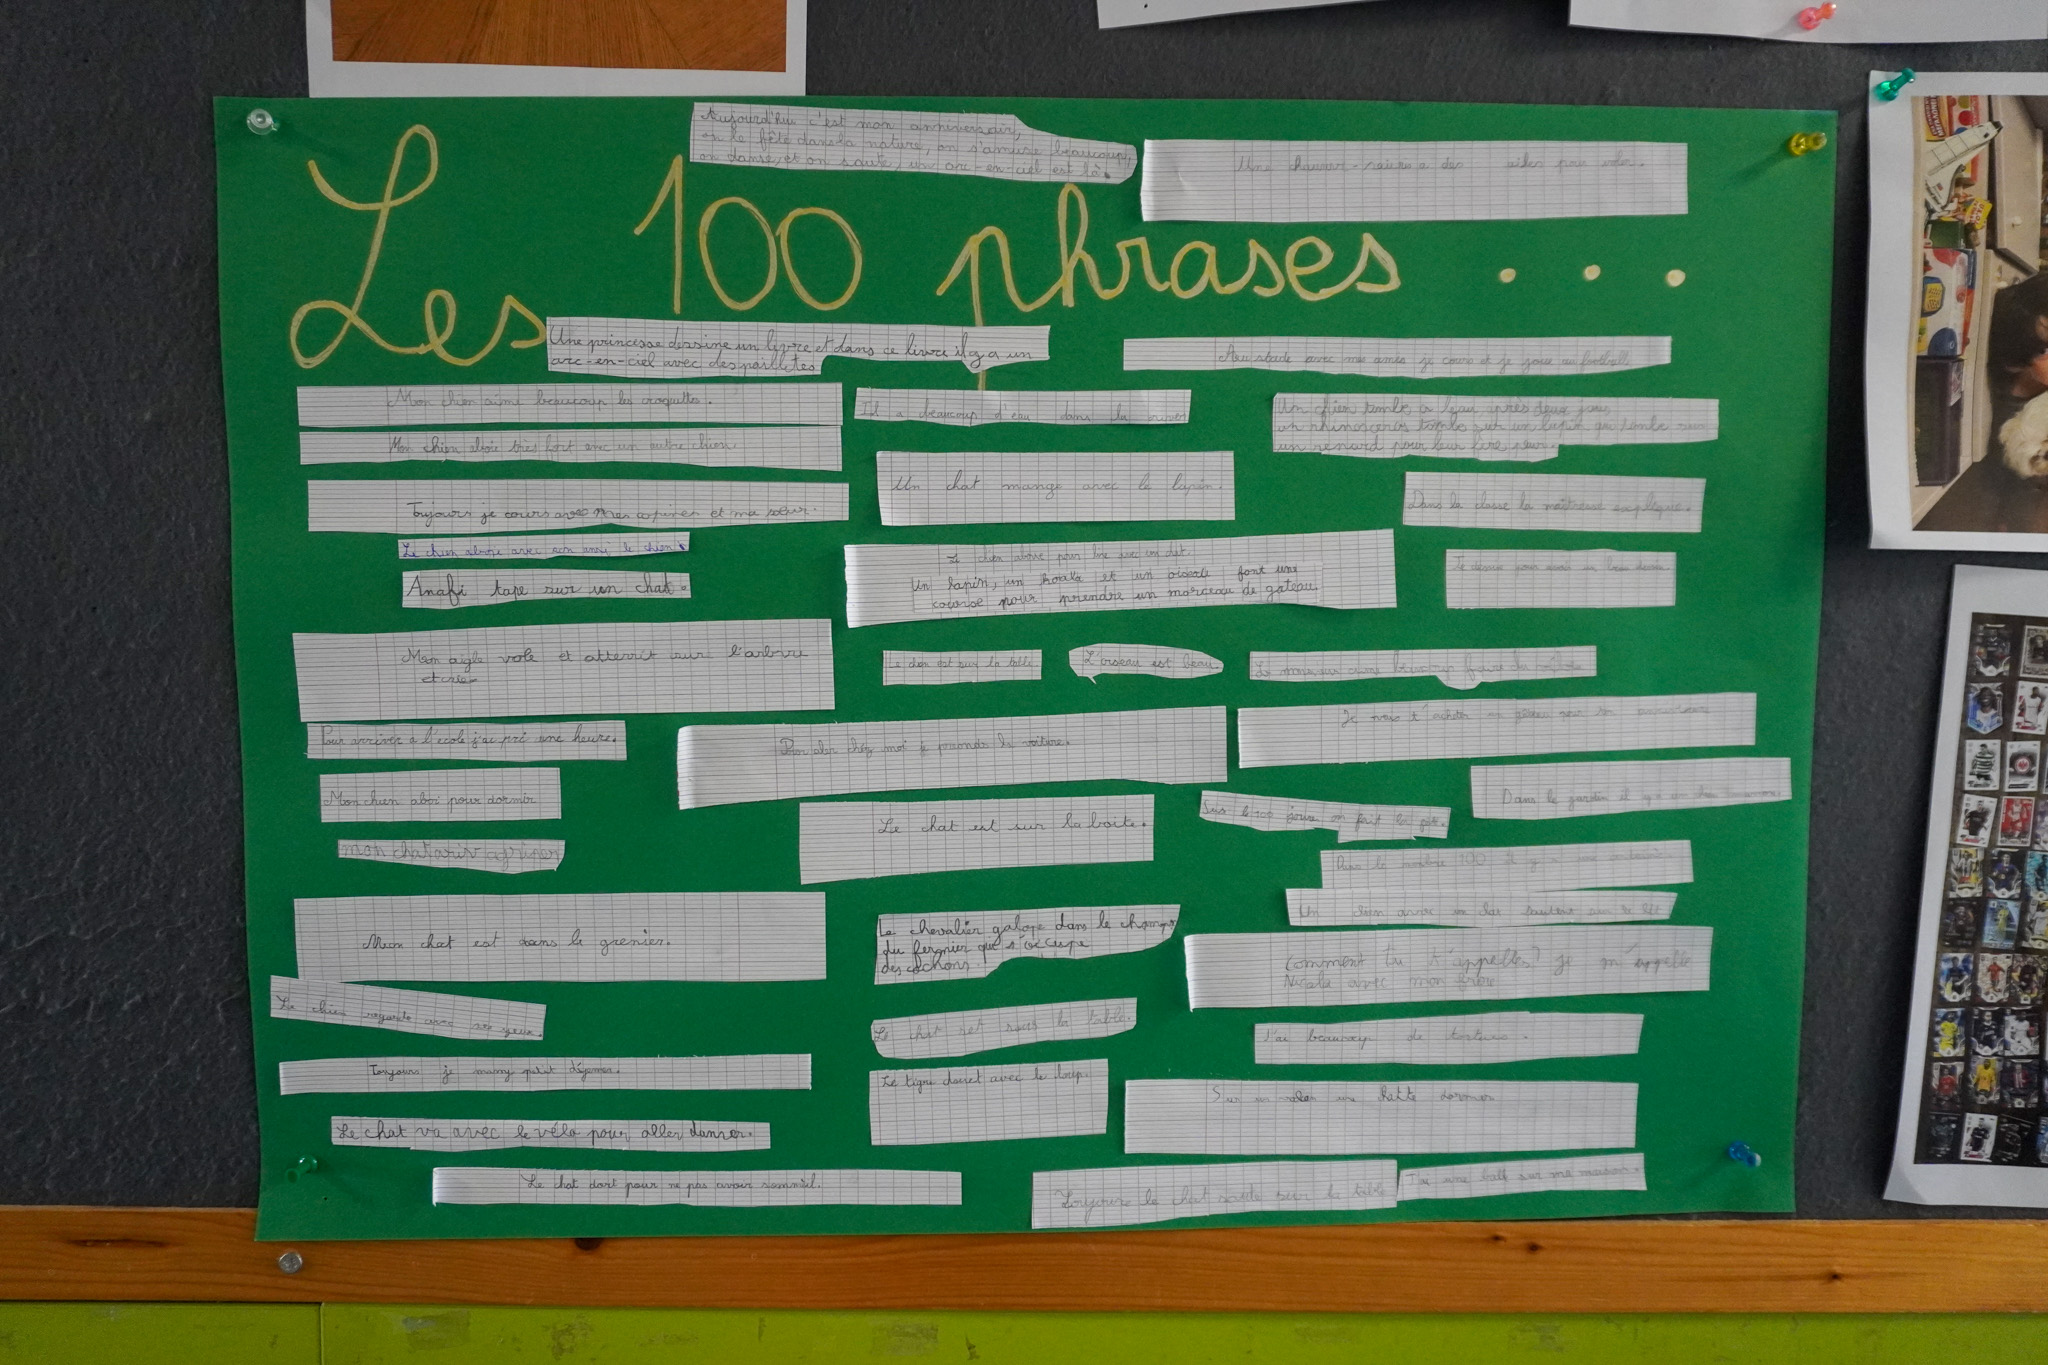 Aujourd'hui c'est mon anniversair,
on le fête dans la nature, on s'amuse beaucoup,
on danse, et on saute, un arc-en-ciel est là.
Une chauve-souris a des ailes pour voler.
Les 100 phrases ...
Une princesse dessine un livre et dans ce livre il y a un
arc-en-ciel avec des paillètes
avec mes amis je cours et je joue au football
Mon chien aime beaucoup les croquettes.
Il a beaucoup d'eau dans la
Un chien tombe a l'eau après deux jours
un rhinoceros tombe sur un lapin qui tombe sur
un renard pour leur fere peur.
Mon chien aboie très fort avec un autre chien.
Un chat mange avec le lapin.
Toujours je cours avec mes copines et ma sœur.
Dans la classe la maîtresse explique.
Le chien aboie avec son ami le chien.
Le chien aboie pour lire avec un chat.
Un lapin, un koala et un oiseau font une
course pour prendre un morceau de gateau.
Je dessine pour avoir un beau dessin.
Anafi tape sur un chat.
Mon aigle vole et atterrit sur l'arbre
et crie
Le chien est sur la table
L'oiseau est beau.
Le monsieur aime beaucoup faire du
Pour arriver a l'école j'ai pri une heure.
Pour aler chez moi je prends la voiture.
Je vais t'acheter un gâteau pour ton anniversaire
Mon chien aboi pour dormir
Le chat est sur la boite.
le 100 jours on fait la fête.
Dans le jardin il y a un
mon chat ariv a griper
Dans le nombre 100 il y a
Mon chat est dans le grenier.
Le chevalier galope dans le champs
du fermier qui s'occupe
des cochons.
Un chien avec un chat sautent sur le lit
Comment tu t'appelles? Je m'appelle
Nicola avec mon frère
Le chien regarde avec ses yeux.
Le chat est sous la table.
J'ai beaucoup de
Toujours je mang petit déjeuner.
Le tigre dort avec le loup.
Sur un une chatte
Le chat va avec le vélo pour aller danser.
Le chat dort pour ne pas avoir sommeil.
Toujours le chat saute sur la table
J'ai une balle sur ma maison.